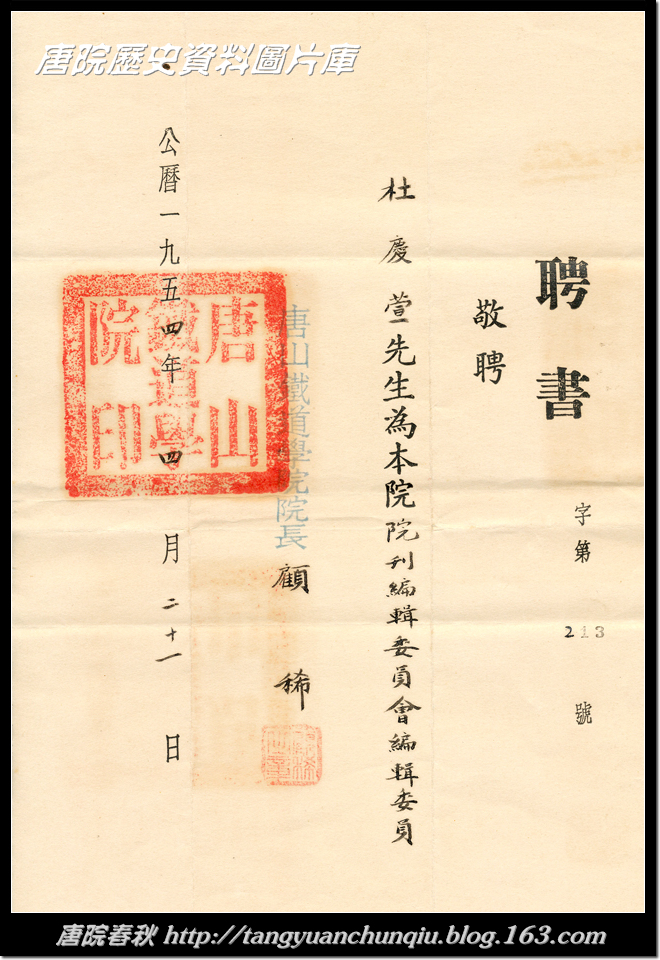 唐院歷史資料圖片庫
聘書
字第213號
敬聘
杜慶萱先生為本院院刊編輯委員會編輯委員
唐山鐵道學院院長顧稀
公曆一九五四年四月二十一日
唐山
鐵道學
院印
唐院春秋 http://tangyuanchunqiu.blog.163.com